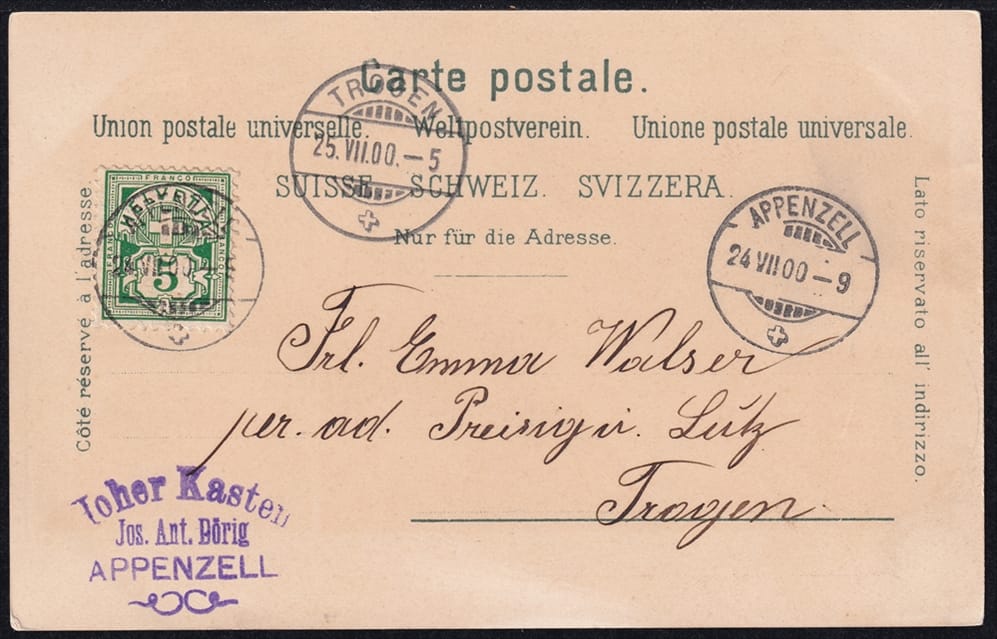 Carte postale.
Union postale universelle. Weltpostverein. Unione postale universale.
SUISSE. SCHWEIZ. SVIZZERA.
Nur für die Adresse.
Côté réservé à l'adresse
Lato riservato all' indirizzo.
TROGEN
25.VII.00.–5
APPENZELL
24 VII 00 –9
FRANCO
HELVETIA
FRANCO
FRANCO
5
24 VII 00
Frl. Emma Walser
per. ad. Preisig u. Lutz
Trogen
Hoher Kasten
Jos. Ant. Dörig
APPENZELL